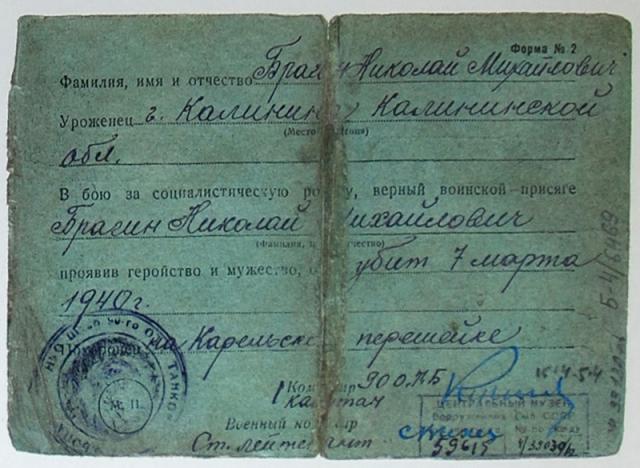 Форма № 2
Фамилия, имя и отчество Брагин Николай Михайлович
Уроженец г. Калинина Калининской
(Место рождения)
обл.
В бою за социалистическую родину, верный воинской присяге
Брагин Николай Михайлович
(Фамилия, имя и отчество)
проявив геройство и мужество, убит 7 марта
1940 г.
Похоронен на Карельском перешейке
Командир 90 ОТБ
капитан
М. П.
Военный комиссар
Ст. лейтенант
ЦЕНТРАЛЬНЫЙ МУЗЕЙ
Вооруженных Сил СССР